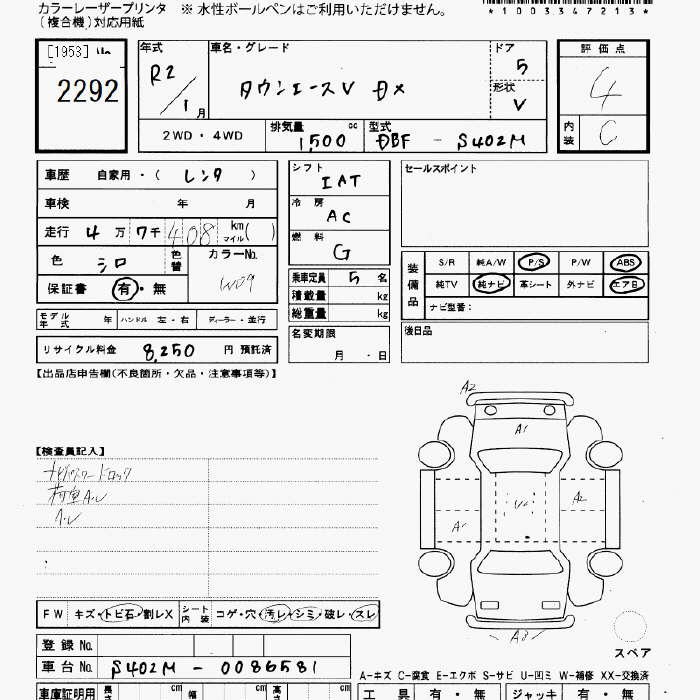 カラーレーザープリンタ ※ 水性ボールペンはご利用いただけません。
(複合機)対応用紙
*1003347213*
[1953]
2292
年式 R2/1月
車名・グレード タウンエースV DX
ドア 5
形状 V
2WD・4WD
排気量 1,500 cc
型式 DBF - S402M
評価点 4
内装 C
車歴 自家用・( レンタ )
車検 年 月
走行 4万 7千 408 km マイル( )
色 シロ 色替
カラーNo. W09
保証書 有・無
モデル年式 年 ハンドル 左・右 ディーラー・並行
リサイクル料金 8,250 円 預託済
シフト IAT
冷房 AC
燃料 G
乗車定員 5 名
積載量 kg
総重量 kg
名変期限 月・日
セールスポイント
装備品 S/R 純A/W P/S P/W ABS
純TV 純ナビ 革シート 外ナビ エアB
ナビ型番:
後日品
【出品店申告欄(不良箇所・欠品・注意事項等)】
【検査員記入】
ナビパスワードロック
荷室A.レ
A2
A1
A2
A3
スペア
FW キズ・トビ石・割レX シート内装 コゲ・穴・汚レ・シミ・破レ・スレ
登録No.
車台No. S402M - 0086581
A-キズ C-腐食 E-エクボ S-サビ U-凹ミ W-補修 XX-交換済
車庫証明用 長さ cm 幅 cm 高さ cm
工具 有・無 ジャッキ 有・無